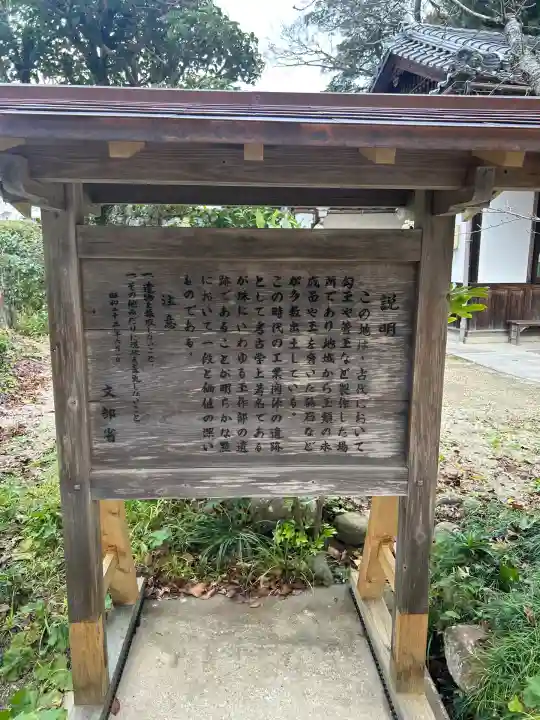 説明
この地は、古代において
勾玉や管玉など製作した場
所であり地域から玉類の未
成品や玉を磨いた砥石など
が多数出土している。
この時代の工業関係の遺跡
として考古学上著名である
が殊にいわゆる玉作部の遺
跡であることが明らかな点
において一段と価値の深い
ものである。
注意
一、遺物を採取しないこと
一、その他みだりに遺跡を荒乱しないこと
文部省